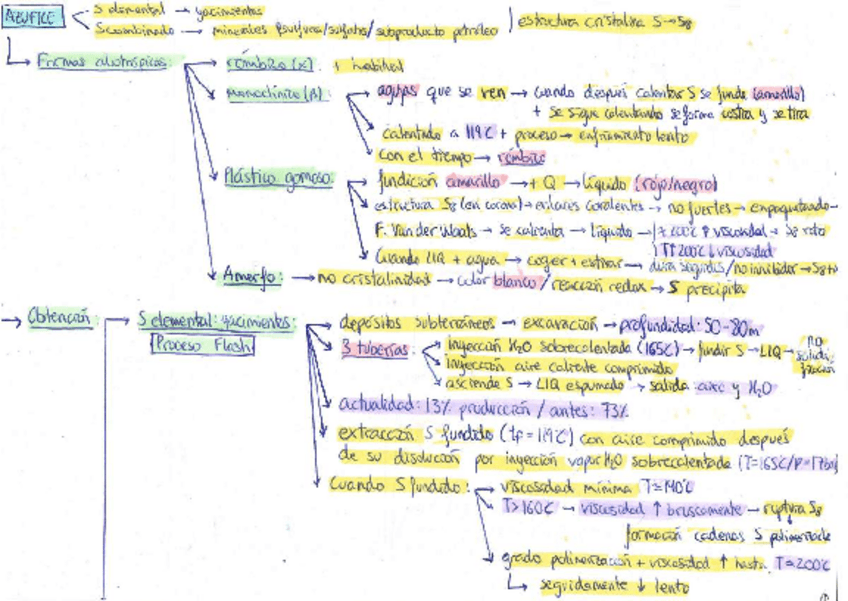 AZUFRE → S elemental → yacimientos
S combinado → minerales sulfuros/sulfatos/subproducto petróleo | estructura cristalina S → S8
Formas alotrópicas: → rómbico (α). + habitual
monoclínico (β) → agujas que se ven → cuando después calentar S se funde (amarillo)
+ se sigue calentando se forma costra y se tira
calentado a 119C + proceso → enfriamiento lento
con el tiempo → rómbico
Plástico gomoso: → fundición amarillo → + Q → líquido (rojo/negro)
estructura S8 (en corona) → enlaces covalentes → no fuertes → empaquetado →
F. Van der Waals → se calienta → líquido → 200C ↑ viscosidad → se rota
T↑ 200C ↓ viscosidad
Cuando LIQ + agua → coger + estirar → dura segundos/
Amorfo: → no cristalinidad → color blanco / reacción redox → S precipita
→ Obtención: → S elemental: yacimientos: → depósitos subterráneos → excavación → profundidad: 50-80m
Proceso Flash
3 tuberías → inyección H2O sobrecalentada (165C) → fundir S → LIQ → no
inyección aire caliente comprimido
asciende S → LIQ espumado → salida aire y H2O
actualidad: 13% producción / antes: 73%
extracción S fundido (tf = 119C) con aire comprimido después
de su disolución por inyección vapor H2O sobrecalentada (T=165C/P=17bar)
Cuando S fundido: → viscosidad mínima T=140C
T>160C → viscosidad ↑ bruscamente → ruptura S8
formación cadenas S
grado polimerización + viscosidad ↑ hasta T=200C
↳ seguidamente ↓ lento